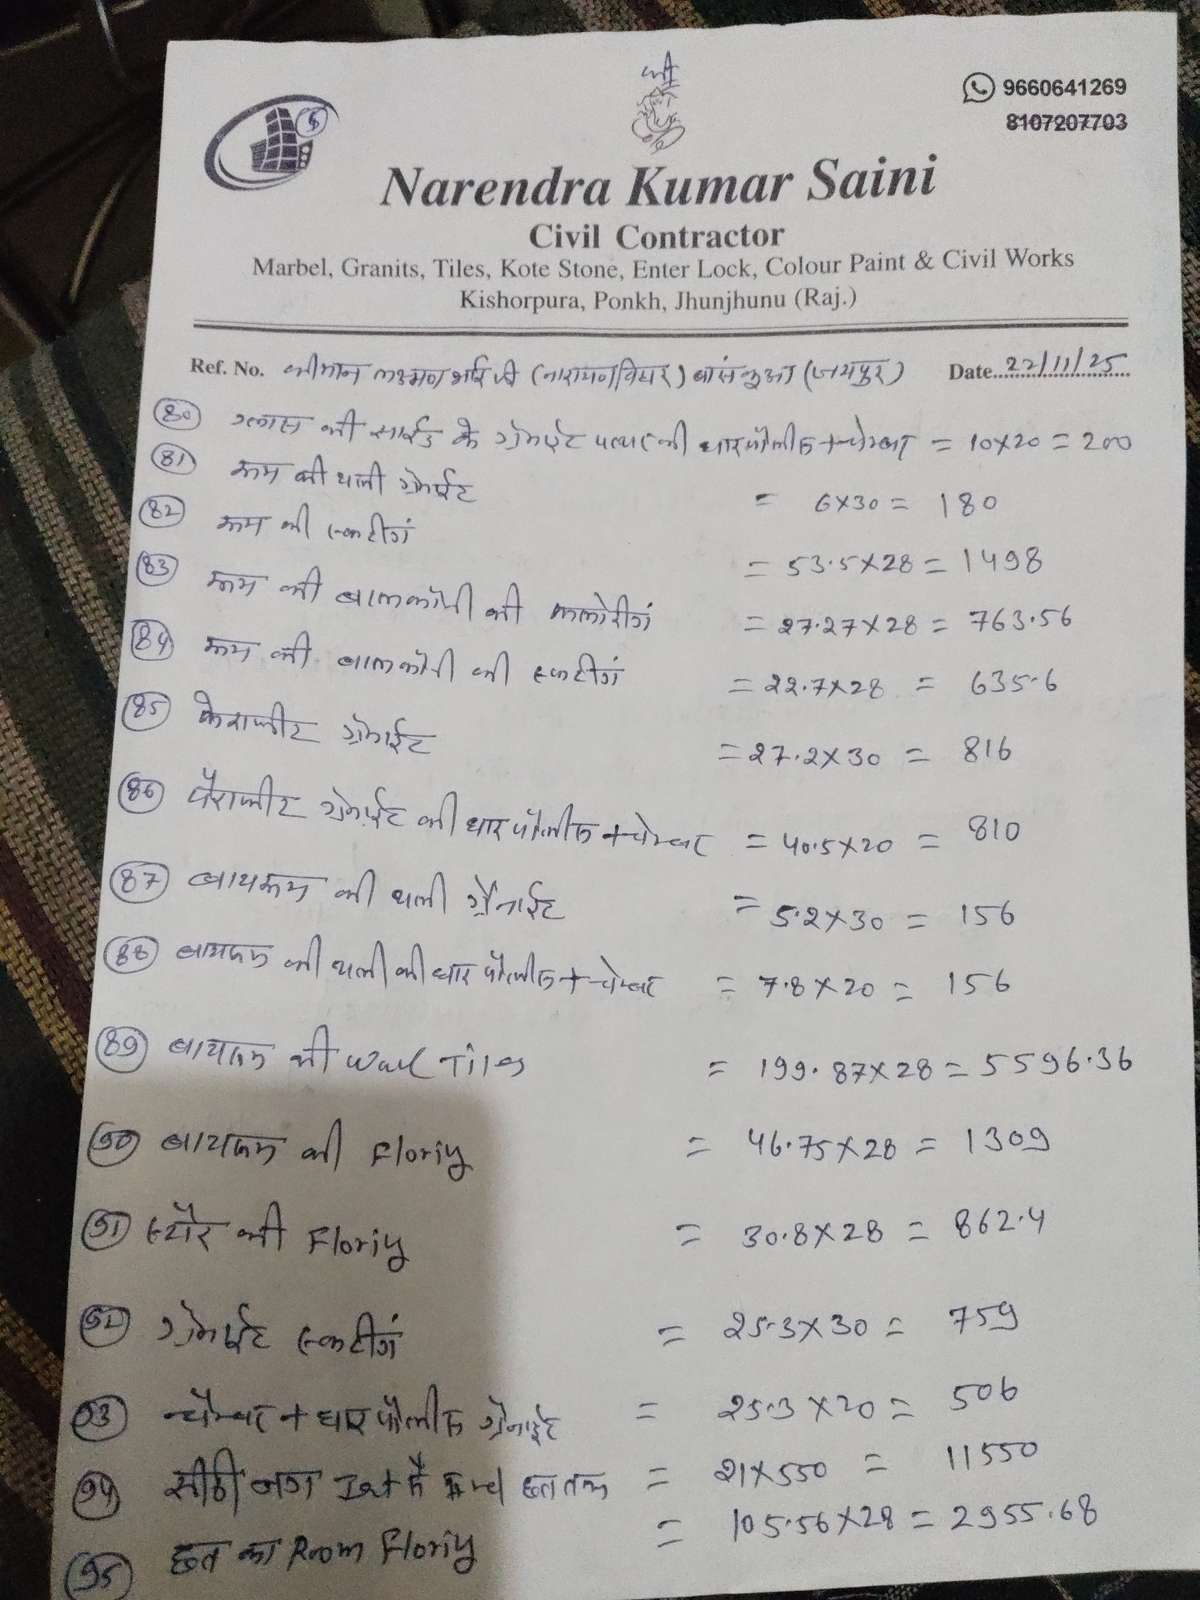 9660641269
8107207703
Narendra Kumar Saini
Civil Contractor
Marbel, Granits, Tiles, Kote Stone, Enter Lock, Colour Paint & Civil Works
Kishorpura, Ponkh, Jhunjhunu (Raj.)
Ref. No. श्रीमान लक्ष्मण भाई जी (नारायण विहार) बांसकुआ (जयपुर) Date 22/11/25
80 ग्लास की साईड के ग्रेनाईट पत्थर की धार पॉलीस + चेम्बर = 10x20 = 200
81 रूम की थली ग्रेनाईट = 6x30 = 180
82 रूम की स्कटींग = 53.5x28 = 1498
83 रूम की बालकॉनी की फ्लोरींग = 27.27x28 = 763.56
84 रूम की बालकॉनी की स्कटींग = 22.7x28 = 635.6
85 पेराफीट ग्रेनाईट = 27.2x30 = 816
86 पैराफीट ग्रेनाईट की धार पॉलीस + चेम्बर = 40.5x20 = 810
87 बाथरूम की थली ग्रैनाईट = 5.2x30 = 156
88 बाथरूम की थली की धार पॉलीस + चेम्बर = 7.8x20 = 156
89 बाथरूम की Wall Tiles = 199.87x28 = 5596.36
90 बाथरूम की Floriy = 46.75x28 = 1309
91 स्टोर की Floriy = 30.8x28 = 862.4
92 ग्रेनाईट स्कटींग = 25.3x30 = 759
93 चैम्बर + धार पॉलीस ग्रेनाईट = 25.3x20 = 506
94 सीढी नग Ist से छत तक = 21x550 = 11550
95 छत का Room Floriy = 105.56x28 = 2955.68